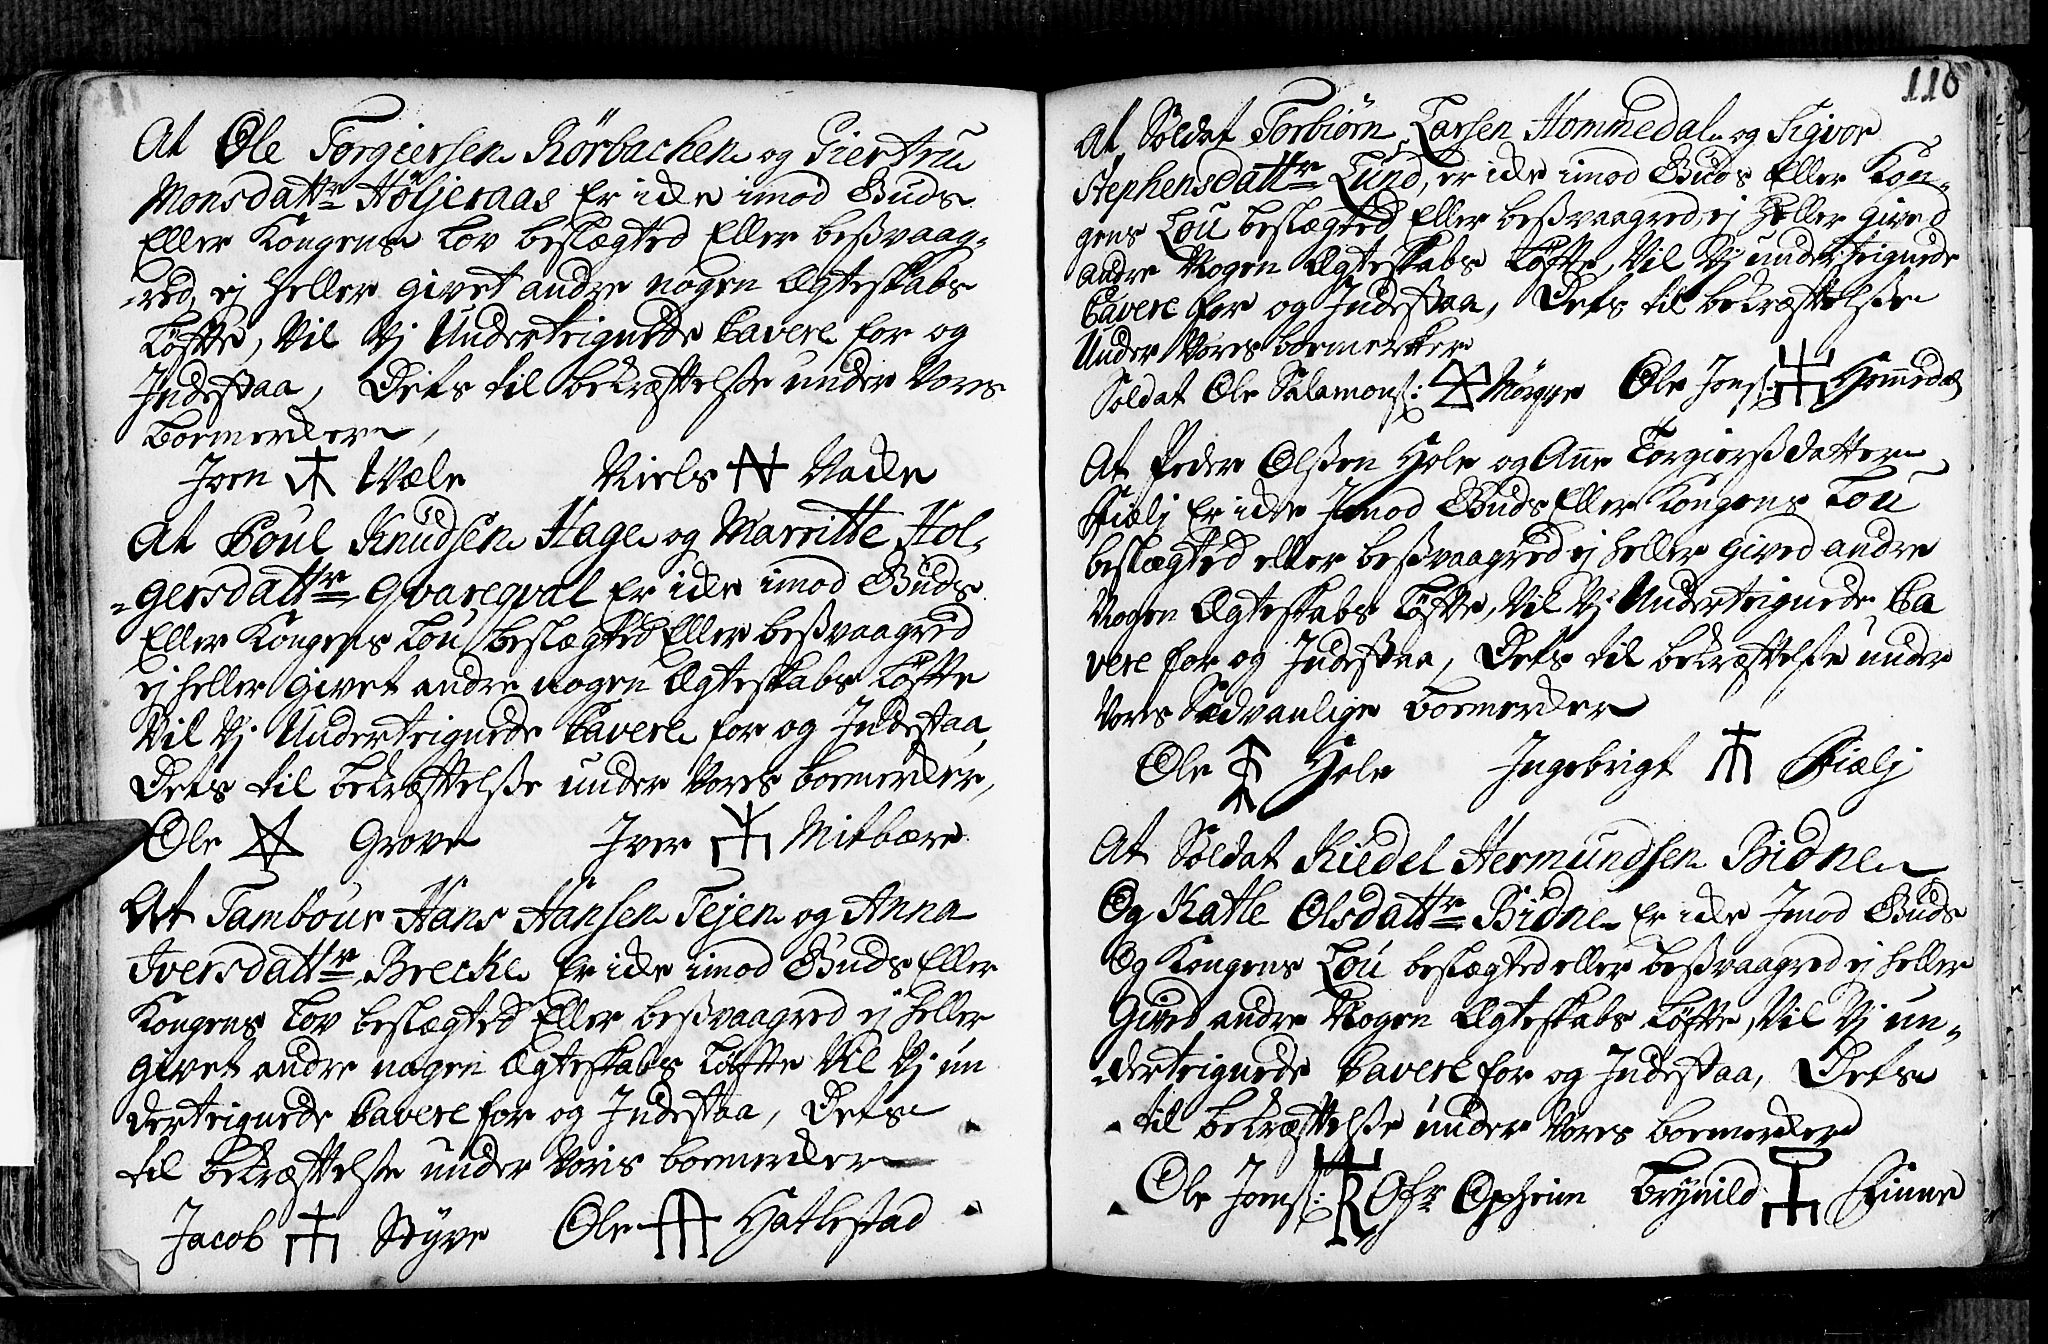 At Ole Torgiersen Rörbachen og Giertru
Monsdattr Höljeraas Er icke imod Guds
Eller Kongens Lov beslægted Eller beßvaag-
-red, ej heller givet andre nogen Ægteskabs
Löfte, Vil Vj Underteignede Cavere for og
Indestaa, Dets til bekræftelsse under Vores
boemercker,
Joen Wæle Niels Vacke
At Poul Knudsen Hage og Marritte Hol-
-gersdattr Qvareqval Er icke imod Guds
Eller Kongens Lou beslægted Eller beßvaagred
ej heller givet andre nogen Ægteskabs Löfte
Vil Vj Underteignede Cavere for og Indestaa,
Dets til bekræftelsse under Vores boemercker,
Ole Grove Iver Mitbære
At Tambour Hans Hansen Tejen og Anna
Iversdattr Brecke Er icke imod Guds Eller
Kongens Lov beslægted Eller beßvaagred ej heller
givet andre nogen Ægteskabs Löfte Vil Vj un
derteignede Cavere for og Indestaa, Dets
til bekræftelsse under Voris boemercker
Jacob Styve Ole Hatlestad
110
At Soldat Torbiörn Larsen Hommedal og Sigvor
Stephensdattr Lund, er icke imod Guds Eller Kon-
gens Lou beslægted Eller beßvaagred, ej heller gived
andre Nogen Ægteskabs Löfte, Vil Vj underteignede
Cavere for og Indestaa, Dets til bekræftelsse
Under Vores boemercker
Soldat Ole Salamons: Mögge Ole Jons: Homedal
At Peder Olssen Hole og Añe Torgiersdatter
Skielj Er icke Imod Guds Eller Kongens Lou
beslægted eller beßvaagred ej heller gived andre
Nogen Ægteskabs Löfte, Vil Vj Underteignede Ca
vere for og Indestaa, Dets til bekræftelsse under
Vores Sædvanlige boemercker
Ole Hole Ingebrigt Skielj
At Soldat Kiedel Hermundsen Bidne
Og Katle Olsdattr Bidne Er icke Imod Guds
Og Kongens Lou beslægted eller beßvaagred ej heller
Gived andre Nogen Ægteskabs Löfte, Vil Vj un-
-derteignede Cavere for og Indestaa, Dets
til bekræftelsse under Vores boemercker
Ole Joens: Ofr Opheim Brynild Finne